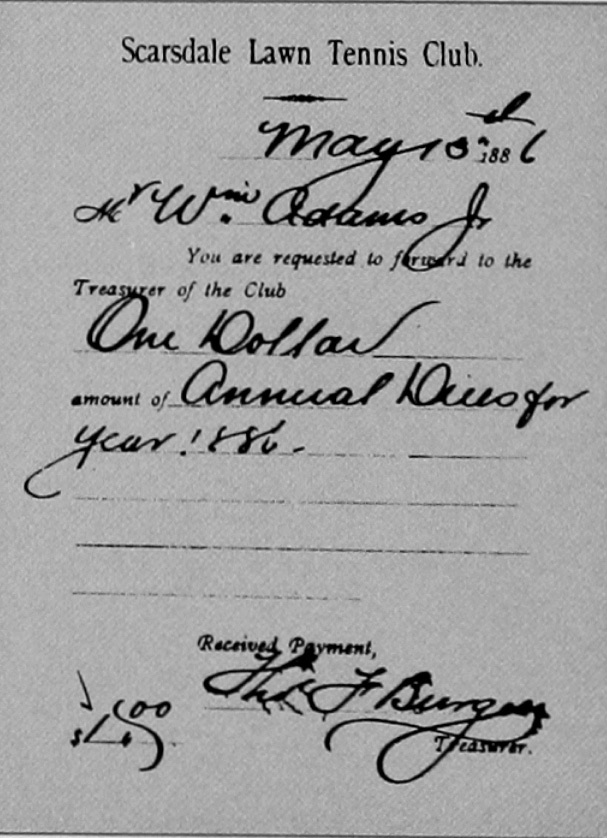 Scarsdale Lawn Tennis Club.
May 1886
Mr Wm. Adams Jr
You are requested to forward to the
Treasurer of the Club
One Dollar
amount of Annual Dues for
year 1886.
Received Payment,
Thos F Burgess
$1.00
Treasurer.